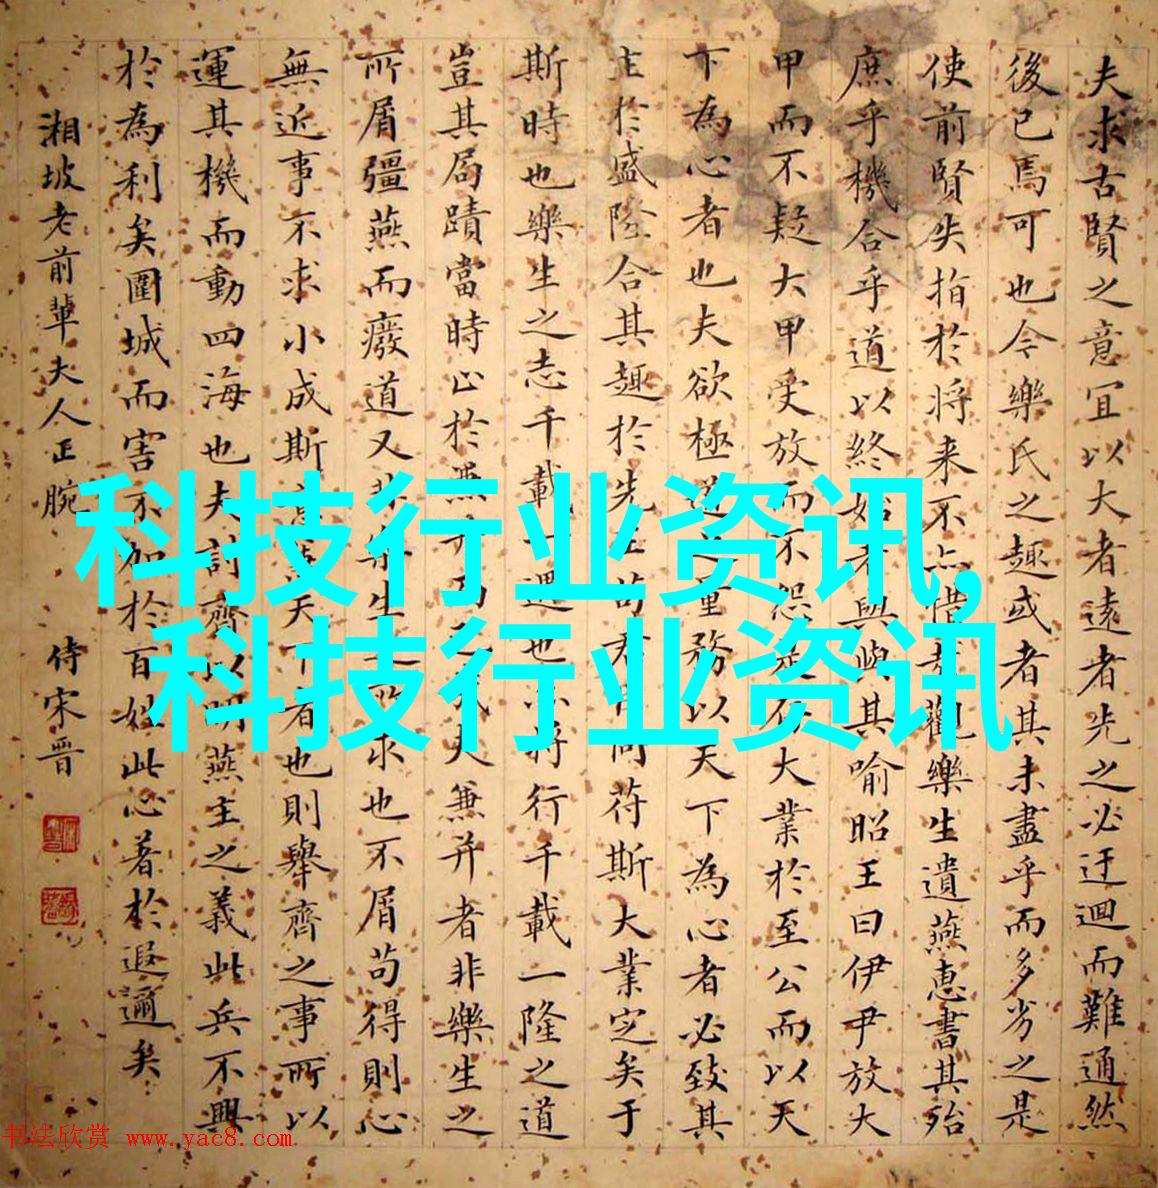 夫求古賢之意宜以大者遠者先之必迂迴而難通然
後已焉可也今樂氏之趣或者其未盡乎而多劣之是
使前賢失指於將来不亦惜哉觀樂生遺燕惠書其殆
庶乎機合乎道以終始者與其喻昭王曰伊尹放大
甲而不疑大甲受放而不怨是存大業於至公而以天
下為心者也夫欲極道之量務以天下為心者必致其
主於盛隆合其趣於先王苟君臣同苻斯大業定矣于
斯時也樂生之志千載一遇也亦將行千載一隆之道
豈其局蹟當時止於兼并而已哉夫兼并者非樂生之
所屑彊燕而廢道又非樂生之所求也不屑苟得則心
無近事不求小成斯意兼天下者也則舉齊之事所以
運其機而動四海也夫討齊以明燕主之義此兵不興
於為利矣圍城而害不加於百姓此心著於遐邇矣
湘坡老前輩夫人正腕 侍宋晉
科技行业资讯,
科技行业资讯
书法欣赏 www.yac8.com